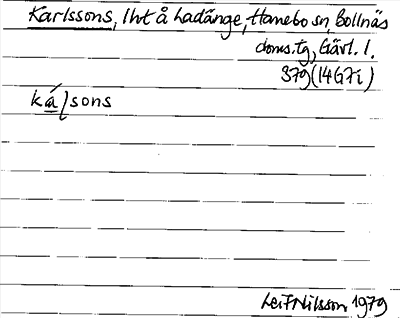 Karlssons, lht å Ladänge, Hanebo sn, Bollnäs
doms.tg, Gävl. l.
37g (14G7i)
kálsons
Leif Nilsson 1979